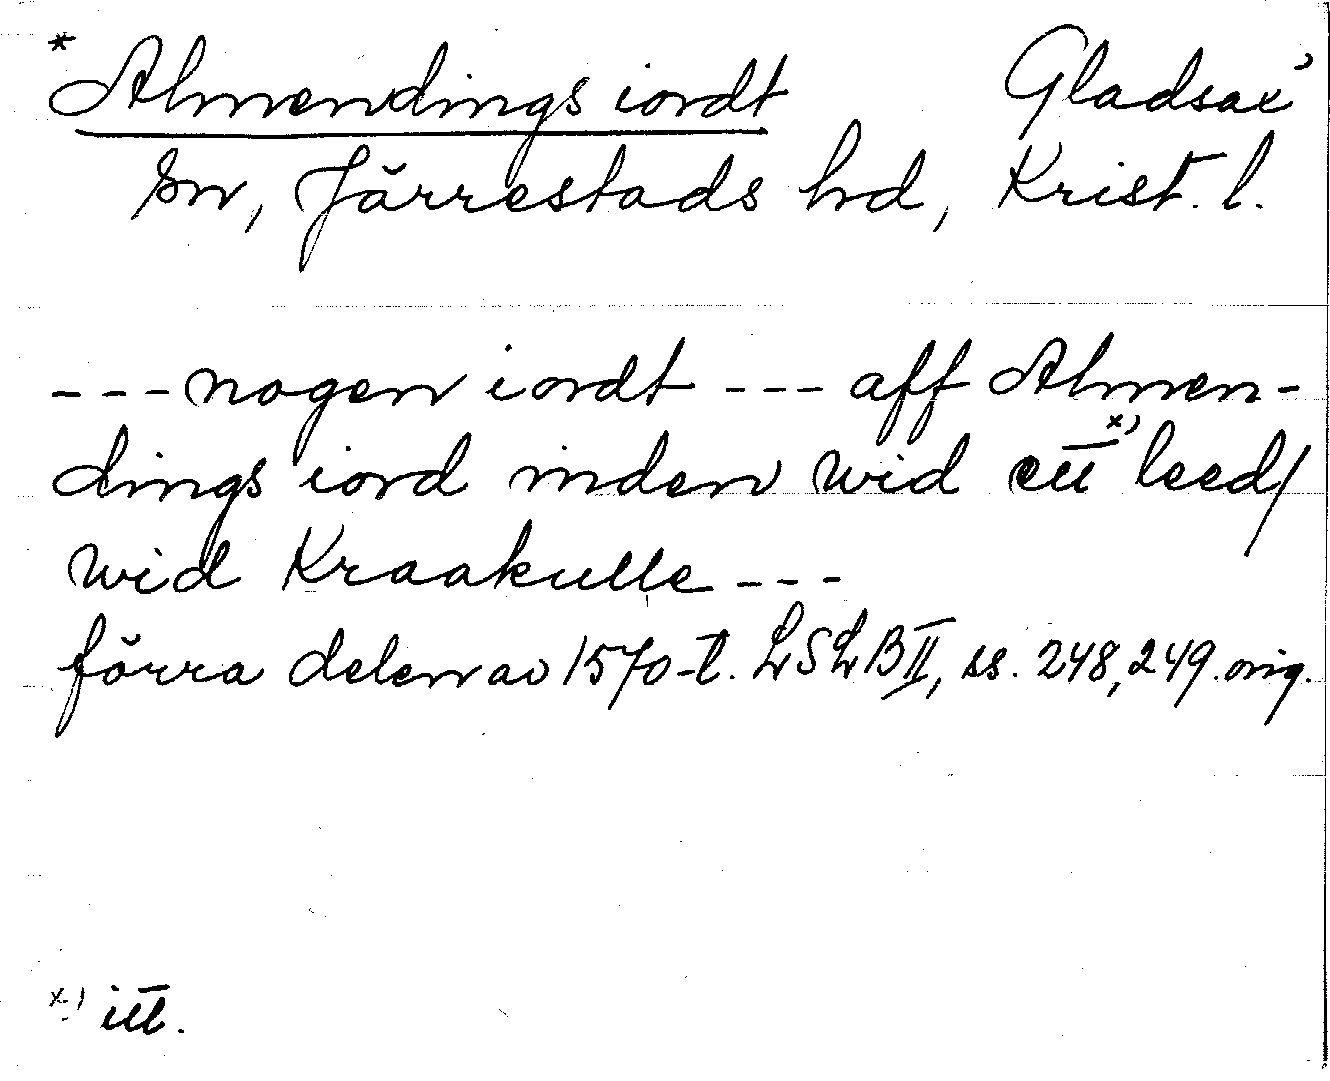 * Almendings iordt Gladsax'
sn, Järrestads hd, Krist. l.
--- nogen iordt --- aff Almen-
dings iord inden wid ett x) leed/
wid Kraakulle ---
förra delen av 1570-t. LSLB II, ss. 248, 249. orig.
x) itt.